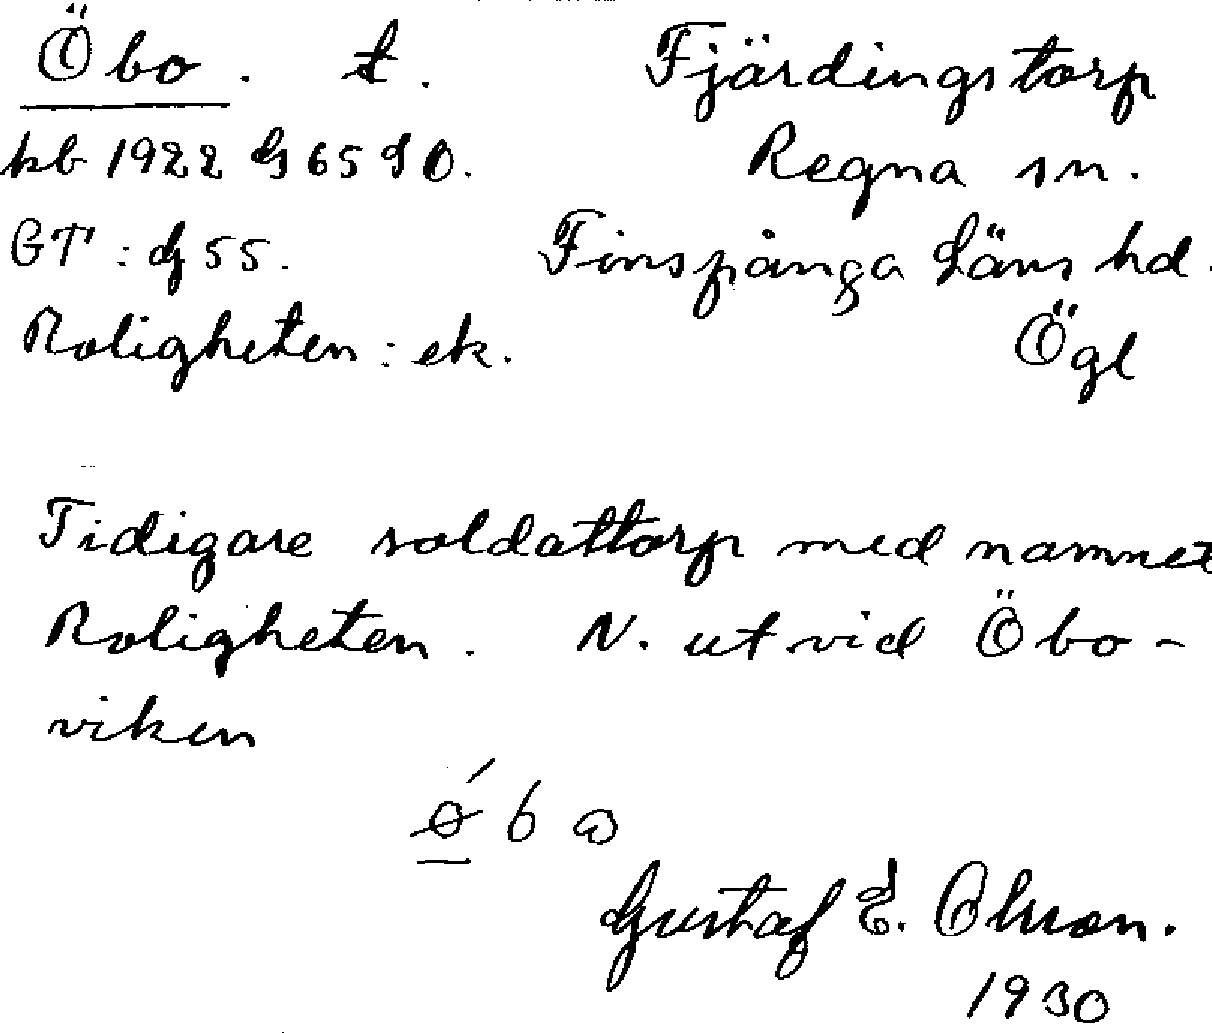 Öbo. t. Fjärdingstorp
kb 1922 G 65 d 0. Regna sn.
GT: dj 55. Finspånga Läns hd.
Roligheten: ek. Ögl
Tidigare soldattorp med namnet
Roligheten. N. ut vid Öbo-
viken
Gustaf E. Olsson.
1930